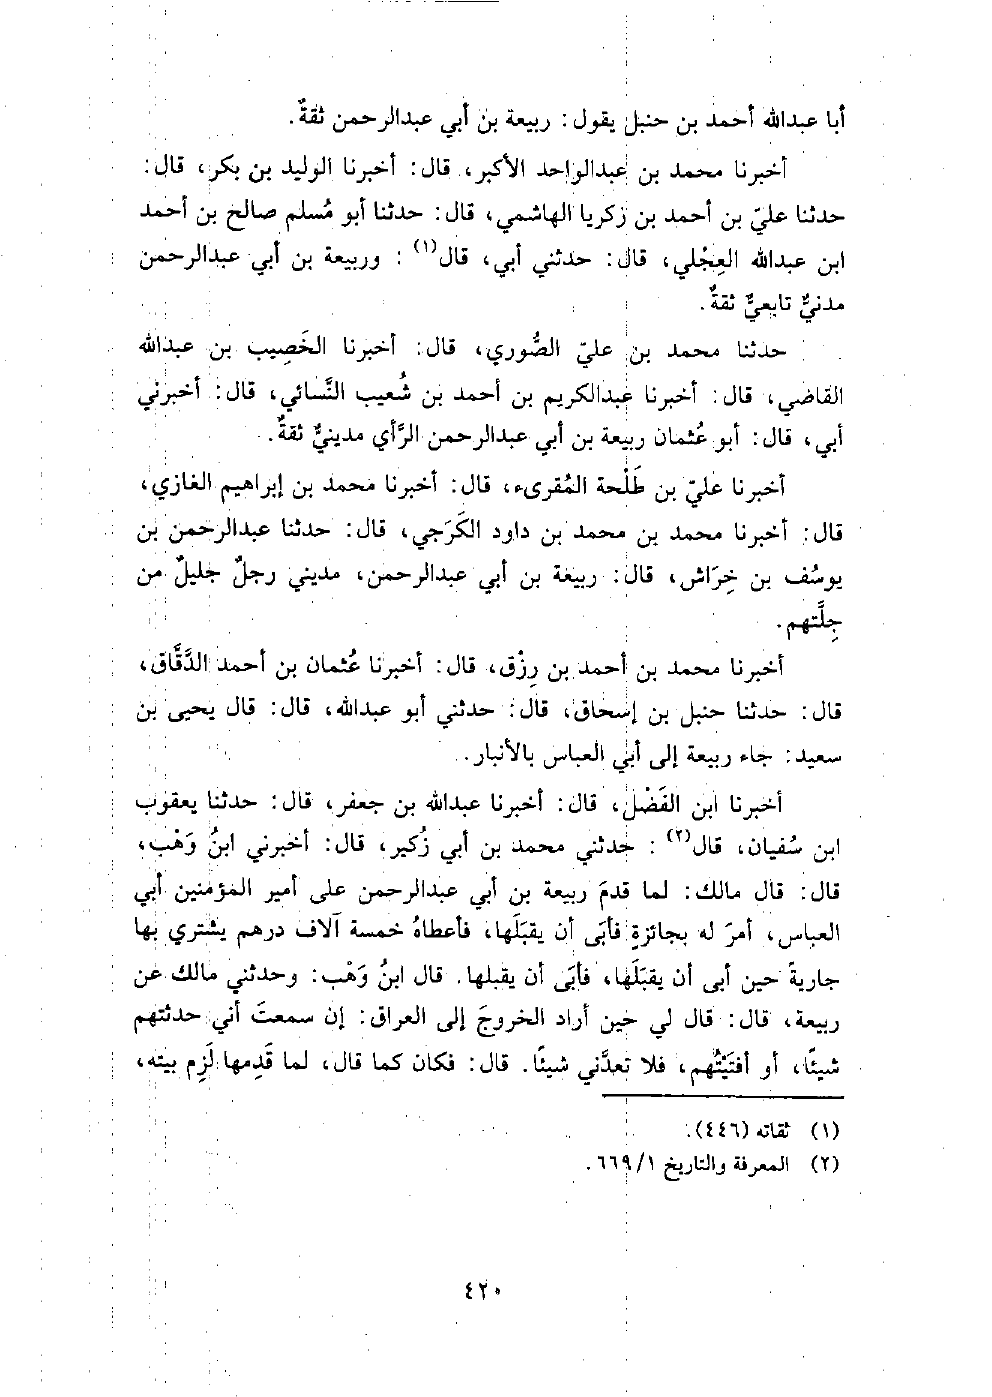 أبا عبدالله أحمد بن حنبل يقول: ربيعة بن أبي عبدالرحمن ثقةٌ.
أخبرنا محمد بن عبدالواحد الأكبر، قال: أخبرنا الوليد بن بكر، قال:
حدثنا عليّ بن أحمد بن زكريا الهاشمي، قال: حدثنا أبو مُسلم صالح بن أحمد
ابن عبدالله العِجْلي، قال: حدثني أبي، قال(١): وربيعة بن أبي عبدالرحمن
مدنيٌّ تابعيٌّ ثقةٌ.
حدثنا محمد بن عليّ الصُّوري، قال: أخبرنا الخَصِيب بن عبدالله
القاضي، قال: أخبرنا عبدالكريم بن أحمد بن شُعيب النَّسائي، قال: أخبرني
أبي، قال: أبو عُثمان ربيعة بن أبي عبدالرحمن الرَّأي مدينيٌّ ثقةٌ.
أخبرنا عليّ بن طَلْحة المُقرىء، قال: أخبرنا محمد بن إبراهيم الغازي،
قال: أخبرنا محمد بن محمد بن داود الكَرَجي، قال: حدثنا عبدالرحمن بن
يوسُف بن خِرَاش، قال: ربيعة بن أبي عبدالرحمن، مديني رجلٌ جليلٌ من
جِلَّتهم.
أخبرنا محمد بن أحمد بن رِزْق، قال: أخبرنا عُثمان بن أحمد الدَّقَّاق،
قال: حدثنا حنبل بن إسحاق، قال: حدثني أبو عبدالله، قال: قال يحيى بن
سعيد: جاء ربيعة إلى أبي العباس بالأنبار.
أخبرنا ابن الفَضْل، قال: أخبرنا عبدالله بن جعفر، قال: حدثنا يعقوب
ابن سُفيان، قال(٢): حدثني محمد بن أبي زُكير، قال: أخبرني ابنُ وَهْب،
قال: قال مالك: لما قدمَ ربيعة بن أبي عبدالرحمن على أمير المؤمنين أبي
العباس، أمرَ له بجائزةٍ فأبَى أن يقبَلَها، فأعطاهُ خمسة آلاف درهم يشتري بها
جاريةً حين أبى أن يقبَلَها، فأبَى أن يقبلها. قال ابنُ وَهْب: وحدثني مالك عن
ربيعة، قال: قال لي حين أراد الخروجَ إلى العراق: إن سمعتَ أني حدثتهم
شيئًا، أو أفتَيْتُهم، فلا تعدَّني شيئًا. قال: فكان كما قال، لما قَدِمها لَزِم بيته،
(١) ثقاته (٤٤٦).
(٢) المعرفة والتاريخ ١/ ٦٦٩.
٤٢٠